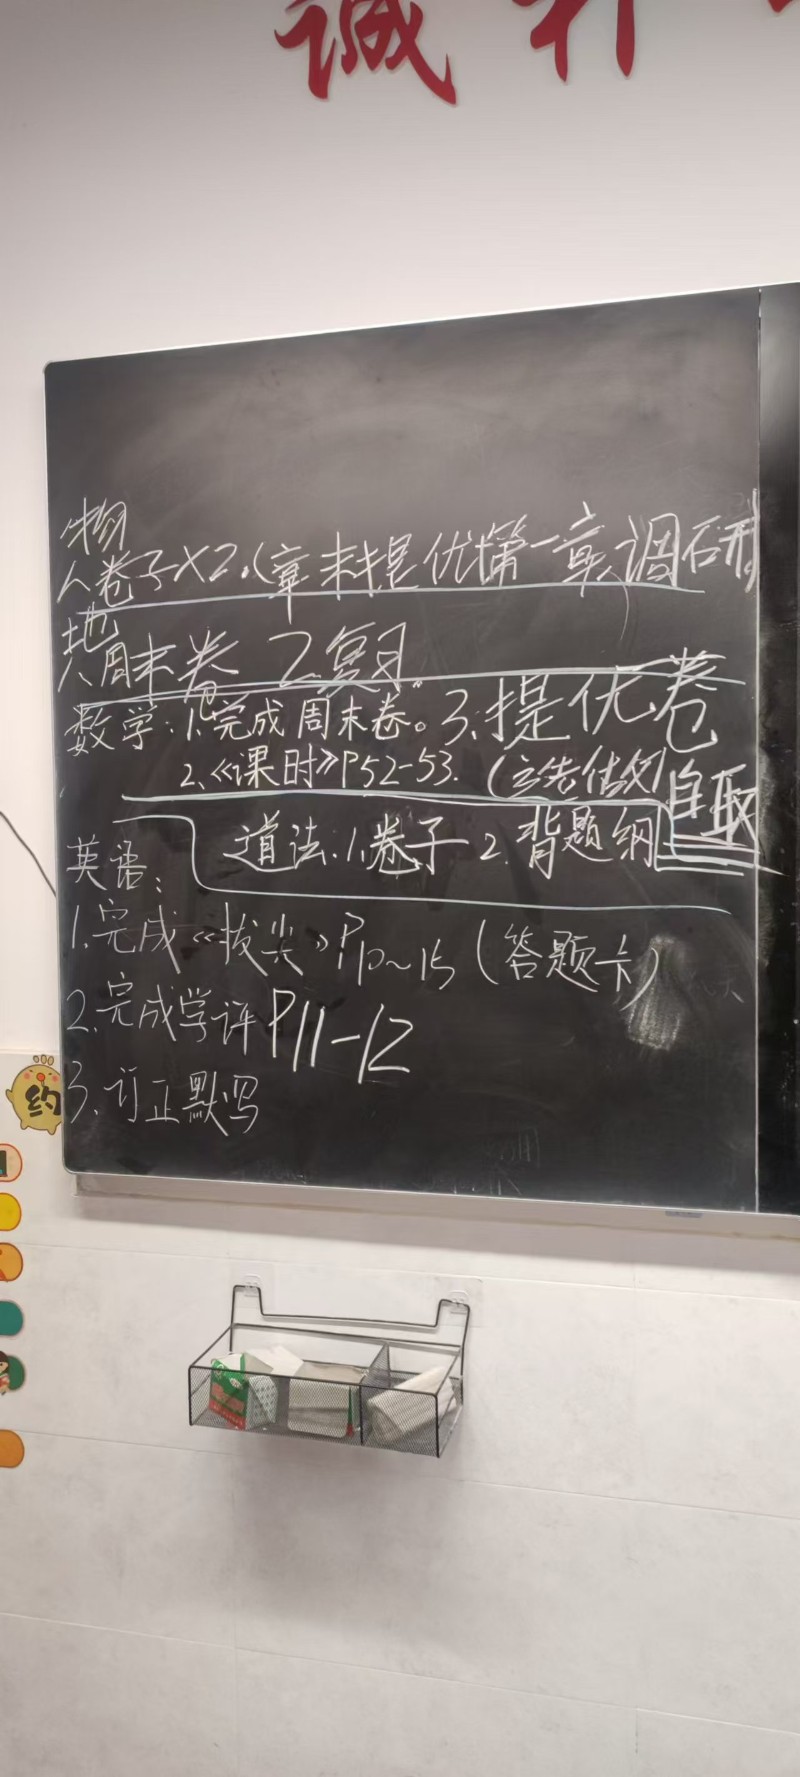 诚
物
1、卷子×2.(章末提优+第一章调研
地
1、周末卷 2.复习
数学:1.完成周末卷。3.提优卷
2.《课时》P52-53. 自取
道法:1.卷子 2.背题纲
英语:
1.完成《拔尖》P10~15(答题卡)
2.完成学评P11-12
3.订正默写
约